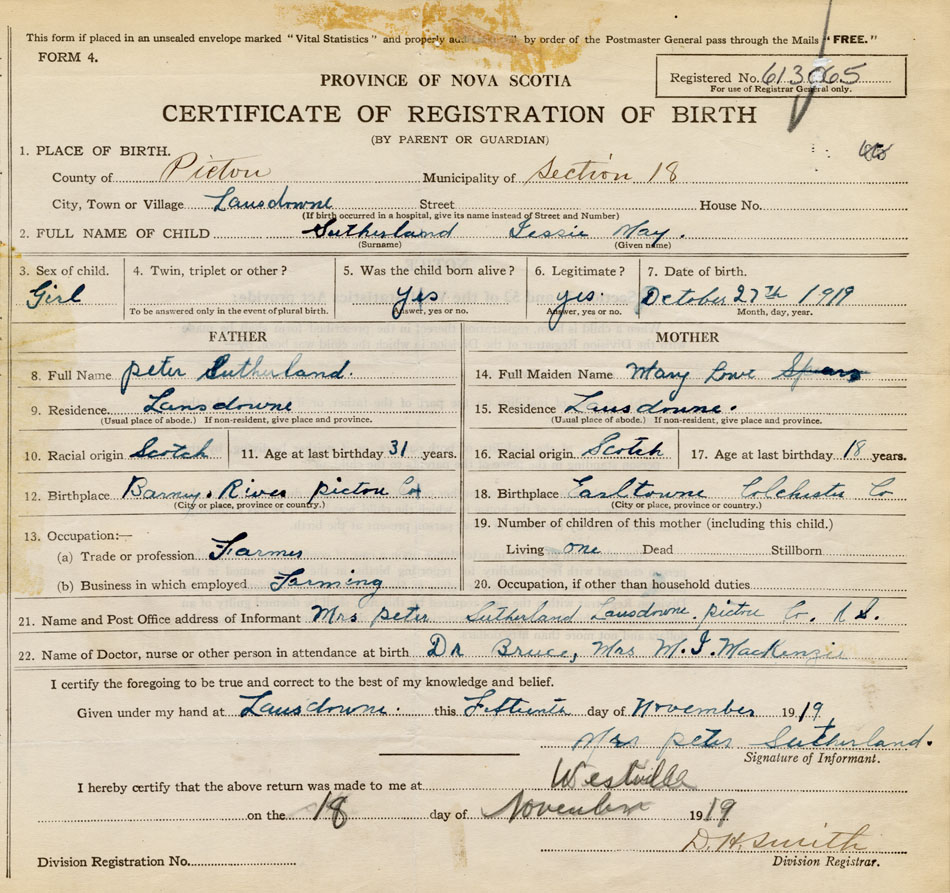 This form if placed in an unsealed envelope marked "Vital Statistics" and properly by order of the Postmaster General pass through the Mails "FREE."
FORM 4.
Registered No. 613065
For use of Registrar General only.
PROVINCE OF NOVA SCOTIA
CERTIFICATE OF REGISTRATION OF BIRTH
(BY PARENT OR GUARDIAN)
1. PLACE OF BIRTH.
County of Pictou Municipality of Section 18
City, Town or Village Lansdowne Street House No.
(If birth occurred in a hospital, give its name instead of Street and Number)
2. FULL NAME OF CHILD Sutherland Jessie May.
(Surname) (Given name)
3. Sex of child. 4. Twin, triplet or other? 5. Was the child born alive? 6. Legitimate? 7. Date of birth.
Girl yes yes. October 27th 1919
To be answered only in the event of plural birth. Answer, yes or no. Answer, yes or no. Month, day, year.
FATHER MOTHER
8. Full Name peter Sutherland. 14. Full Maiden Name Mary Lowe
9. Residence. Lansdowne 15. Residence Lansdowne.
(Usual place of abode.) If non-resident, give place and province. (Usual place of abode.) If non-resident, give place and province.
10. Racial origin Scotch 11. Age at last birthday 31 years. 16. Racial origin Scotch 17. Age at last birthday 18 years.
12. Birthplace Barneys River pictou Co 18. Birthplace Earltowne Colchester Co
(City or place, province or country.) (City or place, province or country.)
19. Number of children of this mother (including this child.)
13. Occupation:—
(a) Trade or profession Farmer Living one Dead Stillborn
(b) Business in which employed Farming 20. Occupation, if other than household duties
21. Name and Post Office address of Informant Mrs peter Sutherland Lansdowne. pictou Co. N S.
22. Name of Doctor, nurse or other person in attendance at birth Dr Bruce, Mrs M. J. MacKenzie
I certify the foregoing to be true and correct to the best of my knowledge and belief.
Given under my hand at Lansdowne. this Fifteenth day of November 1919
Mrs peter Sutherland.
Signature of Informant.
I hereby certify that the above return was made to me at Westville
on the 18 day of November 1919
D. H. Smith
Division Registration No. Division Registrar.